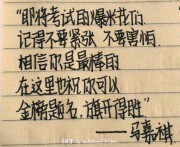 "即将考试的爆米花们
记得不要紧张 不要害怕
相信你是最棒的
在这里也祝你可以
金榜题名,旗开得胜"
——马嘉祺